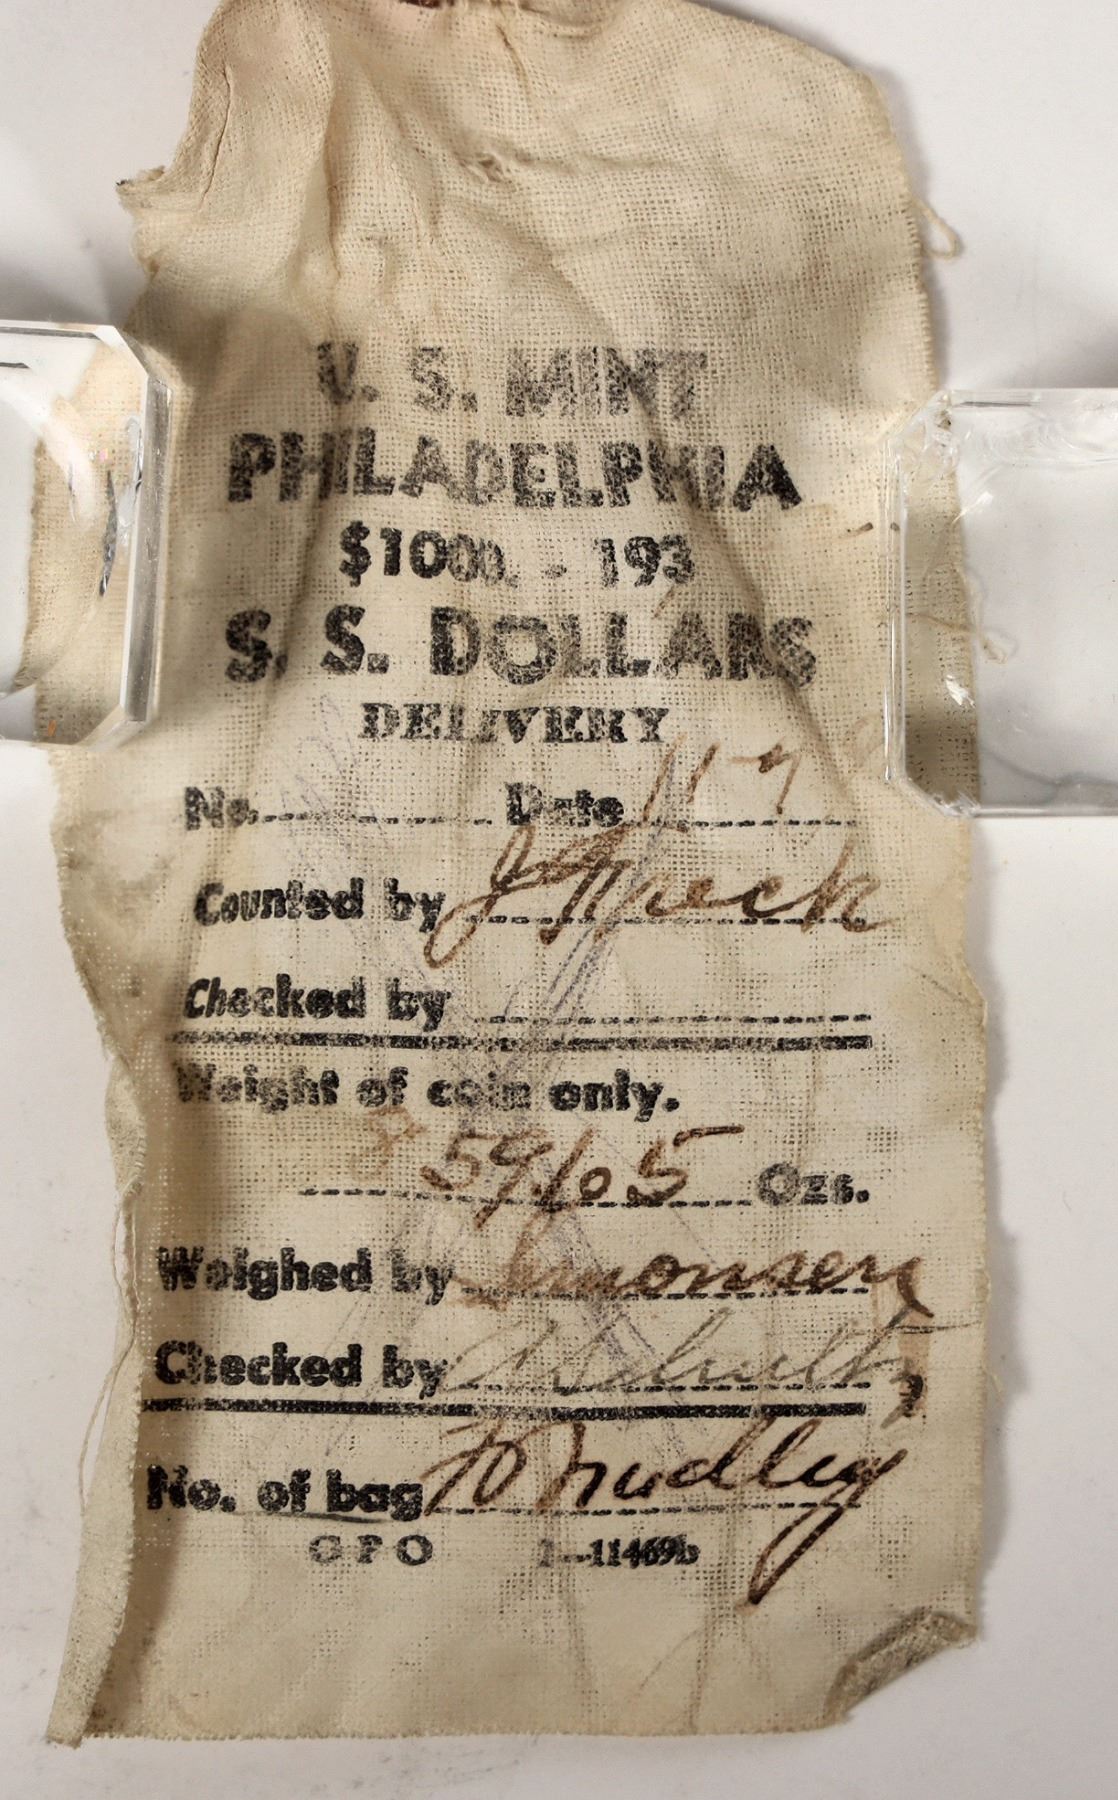 U. S. MINT
PHILADELPHIA
$1000. - 193
S. S. DOLLARS
DELIVERY
No. Date 11-7
Counted by
Checked by
Weight of coin only.
859.05 Ozs.
Weighed by Simonsen
Checked by Schultz
No. of bag
GPO 2-11469b